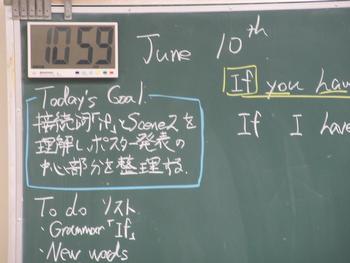 10:59
June 10th
If you hav
If I hav
Today's Goal
接続詞「if」とScene2を
理解し、ポスター発表の
中心部分を整理する。
To do リスト
・Grammar「If」
・New words